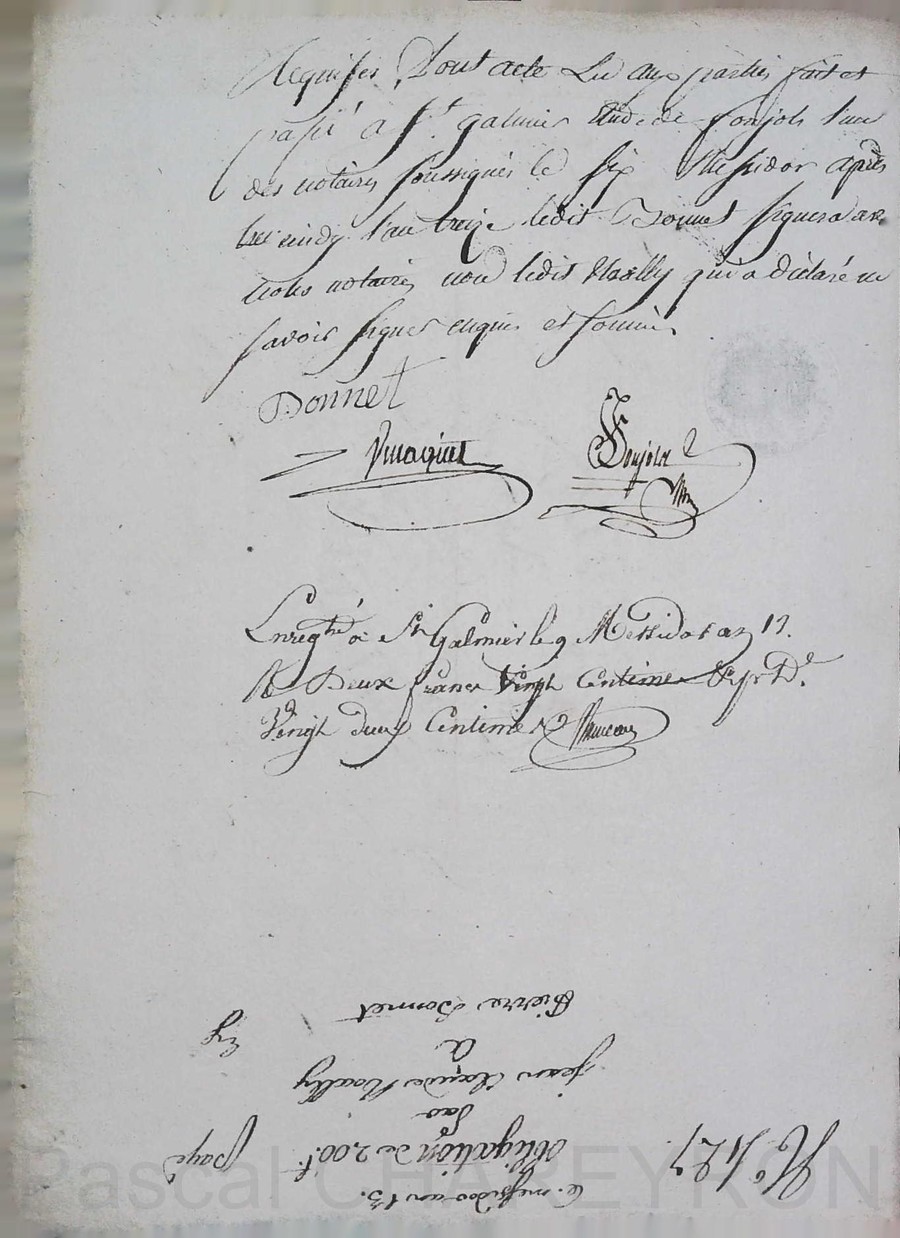 Requises, Dont acte Lu aux parties fait et
passé à St. galmier Etude de Fonjols l'un
des notaires soussignés le six Messidor après
midy l'an treize ledit Donnet signera avec
nous notaires non ledit Noailly qui a déclaré ne
savoir signer enquis et sommé.
Donnet
Fonjols
Enregtré à St Galmier le 9 Messidor an 13.
R Deux francs Vingt Centimes
Vingt deux Centimes
6. messidor an 13.
No. 427
obligation de 200 f.
payé
Par
jean Claude Noailly
a
Pierre Donnet
Pascal CHAPEYRON